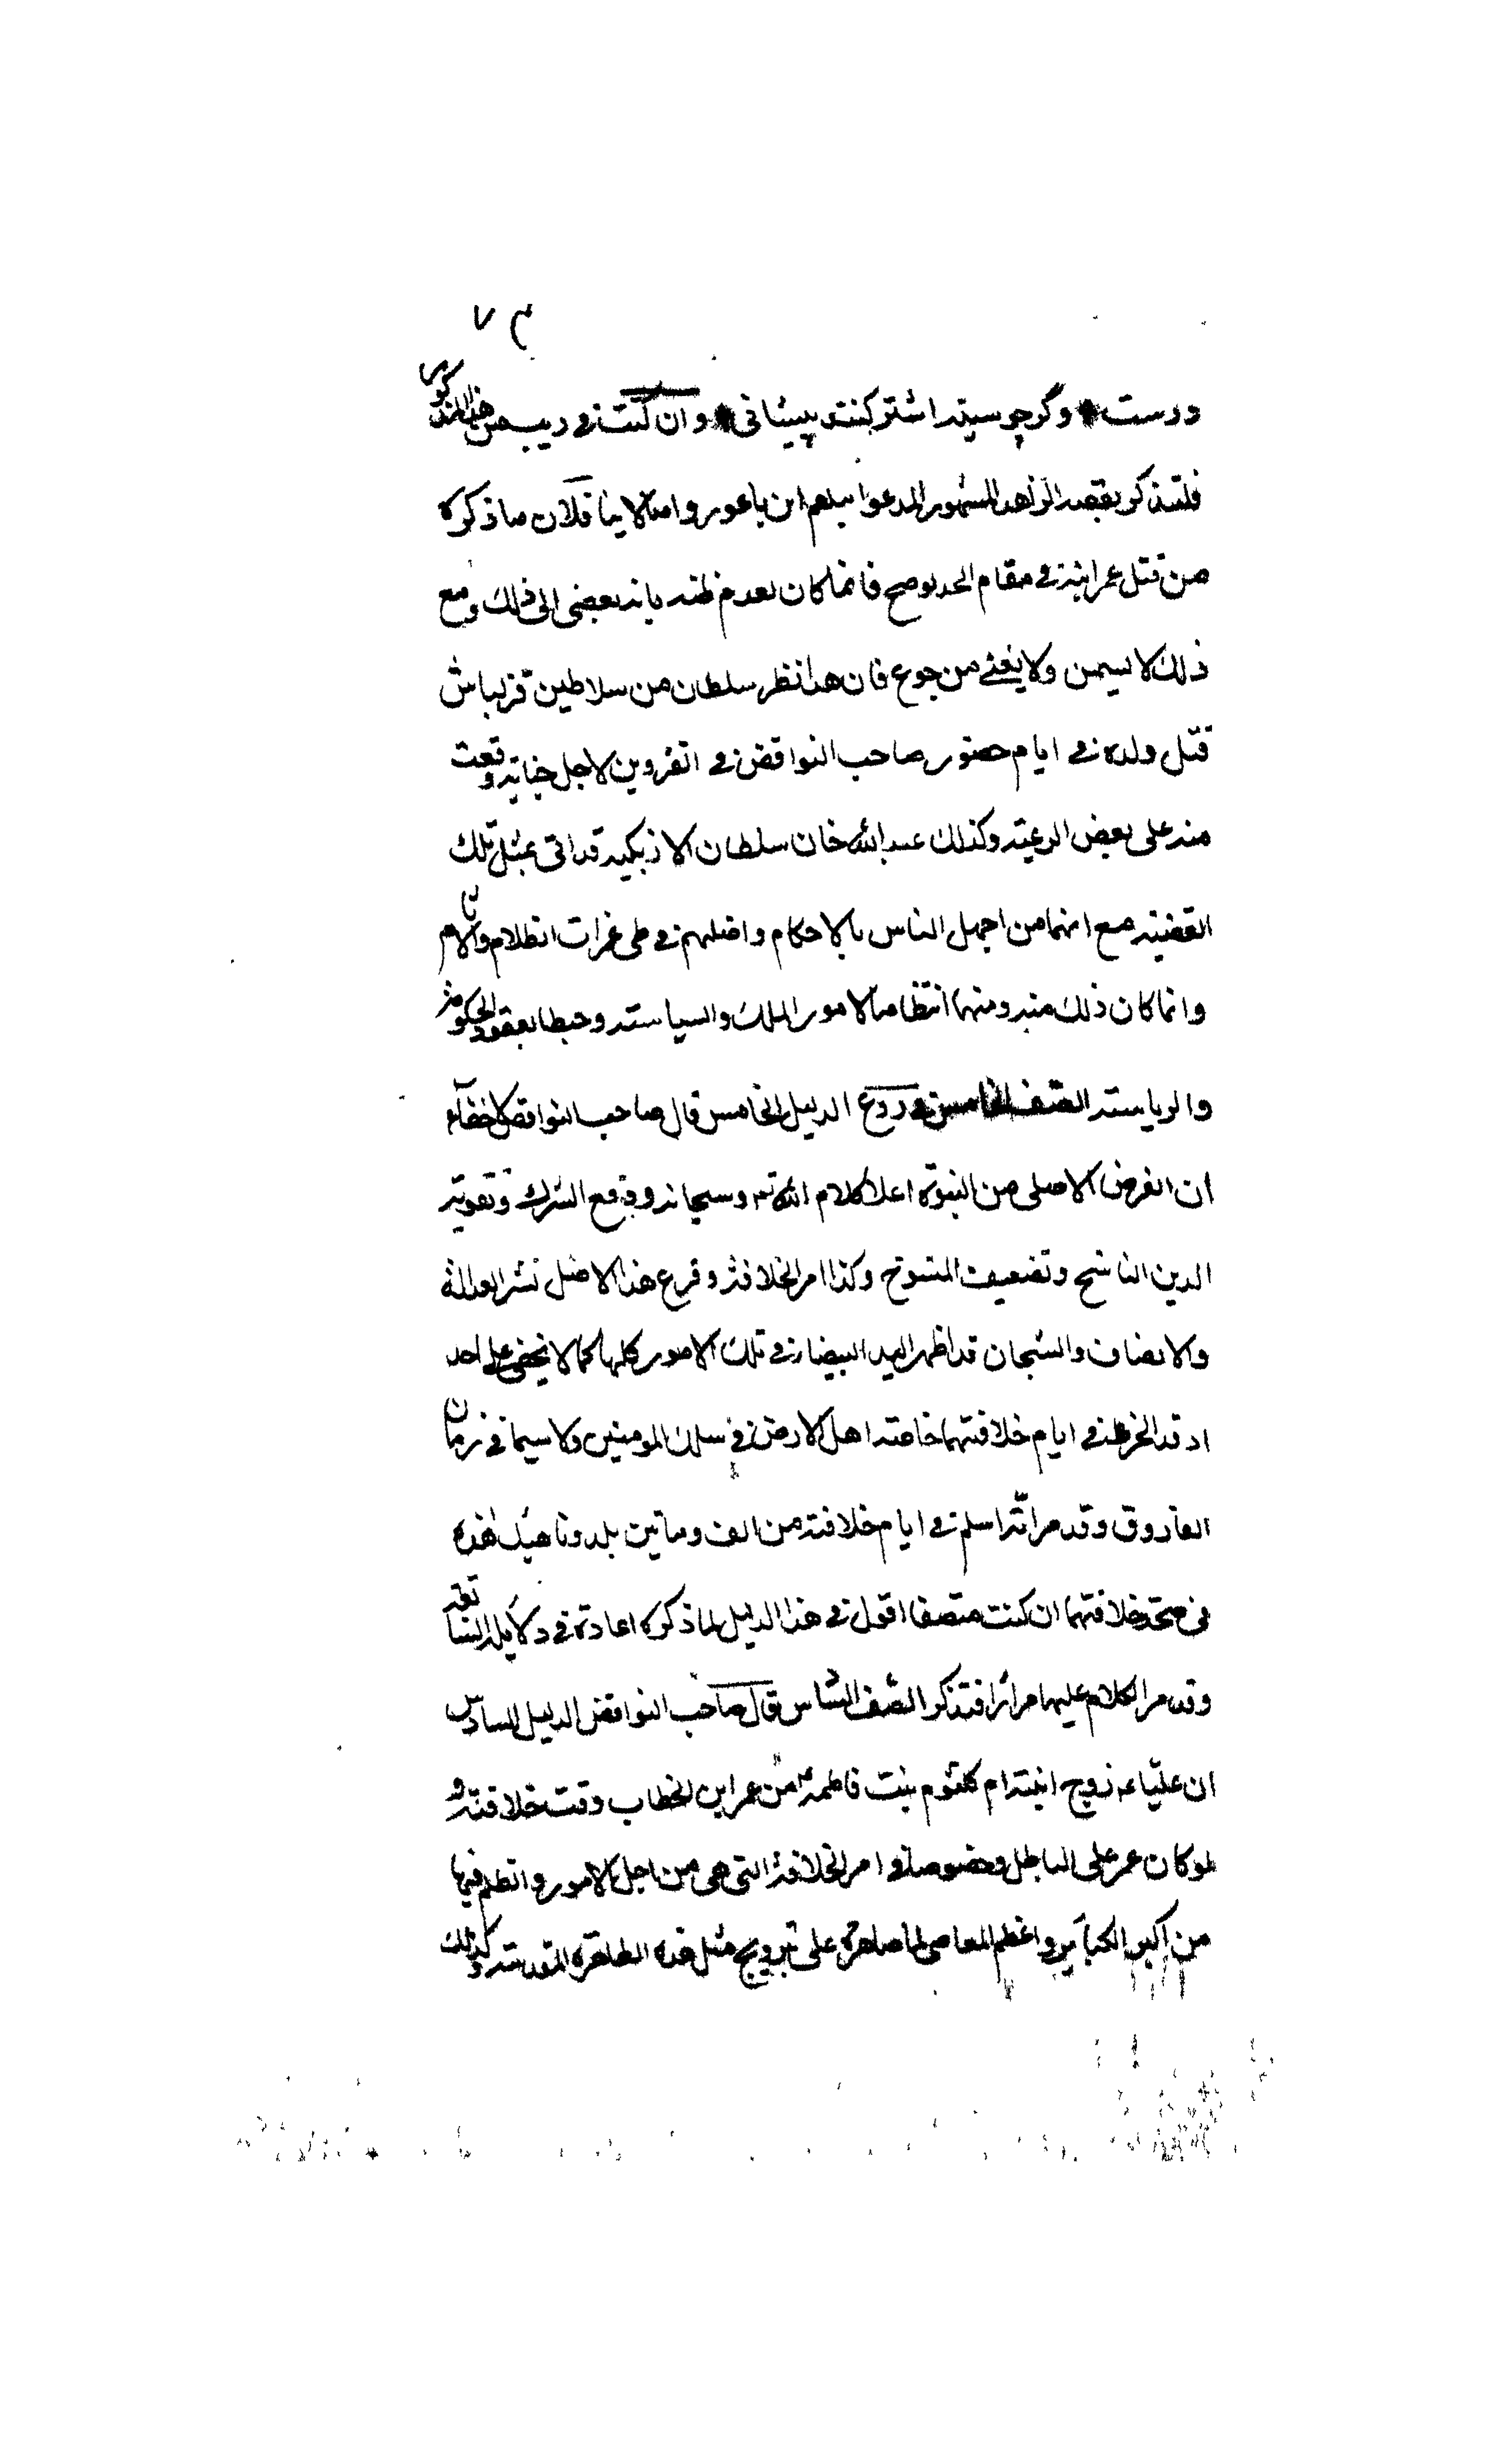 ٧٣
درست * وگرچو سیته اشتر کبنت پیشانی * وان كنت فى ريب من هذا المذكور
فلتتذكر بقصه الزاهد المشهور المدعوا ببلعم ابن باعور واما ثانيا فلان ما ذكره
من قتل عمر ابنه فى مقام الحد لو صح فانما كان لعدم ظنه بانه يفضى الى ذلك ومع
ذلك لا يسمن ولا يغنى من جوع فان هذا نظر سلطان من سلاطين قزلباش
قتل ولده فى ايام حضور صاحب النواقض فى القزوين لاجل خيانه وقعت
منه على بعض الرعية وكذلك عبد الله خان سلطان الازبكيه قد اتى بمثل تلك
القضيه مع انهما من اجهل الناس بالاحكام واضلهم فى طى غمرات الظلام والاثام
وانما كان ذلك منه ومنهما انتظاما لامور الملك والسياسته وضبطا لعقود الحكومة
والرياسته الصنف الخامس فى ردع الدليل الخامس قال صاحب النواقض لاخفآء
ان الغرض الاصلى من النبوة اعلا كلام الله تعـ وسبحانه وقمع الشرك وتقوية
الدين الناسخ وتضعيف المنسوخ وكذا امر الخلافة وفرع هذا الاصل نشر العدالة
والانصاف والشيخان قد اظهر اليد البيضا فى تلك الامور كلها كما لا يخفى على احد
اذ قد انخرط فى ايام خلافتهما خاصته اهل الارض فى سلك المومنين ولا سيما فى زمان
الفاروق وقد مر انه اسلم فى ايام خلافته من الف ومأتين بلد وناهيك هذه
فى صحة خلافتهما ان كنت منصفا اقول فى هذا الدليل لما ذكره اعادة فى دلايله السابقه
وقد مر الكلام عليها مرارا فتذكر الصنف السادس قال صاحب النواقض الدليل السادس
ان عليّا عـ زوج ابنته ام كلثوم بنت فاطمة من عمر ابن الخطاب وقت خلافته و
لو كان عمر على الباطل وخصوصا فى امر الخلافة التى هى من اجل الامور والظلم فيها
من اكبر الكبآير واعظم المعاصى لما صاهره على تزويج مثل هذه الطاهرة المقدسته وكذلك